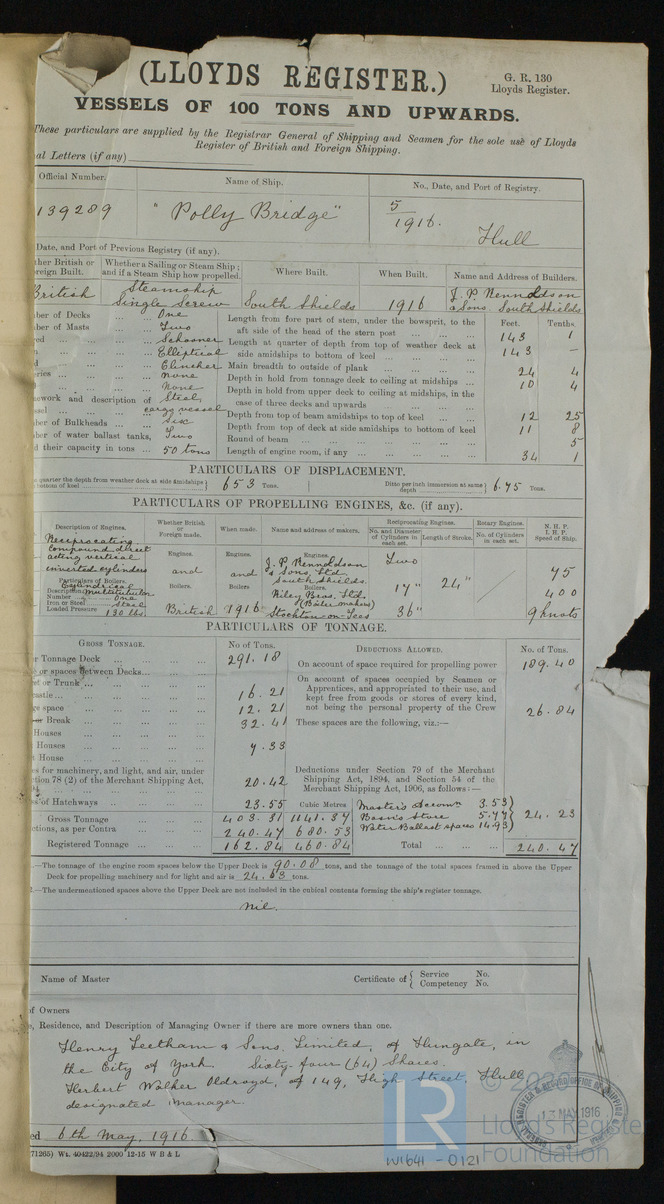 (LLOYDS REGISTER.)
G. R. 130
Lloyds Register.
VESSELS OF 100 TONS AND UPWARDS.
These particulars are supplied by the Registrar General of Shipping and Seamen for the sole use of Lloyds
Register of British and Foreign Shipping.
al Letters (if any)
Official Number. Name of Ship. No., Date, and Port of Registry.
139289 "Polly Bridge" 5/1916. Hull
Date, and Port of Previous Registry (if any).
ther British or Foreign Built. Whether a Sailing or Steam Ship; and if a Steam Ship how propelled. Where Built. When Built. Name and Address of Builders.
British Steamship Single Screw South Shields 1916 J. P. Rennoldson & Sons South Shields
ber of Decks ... One
ber of Masts ... Two
ed ... Schooner
Elliptical
Clincher
eries ... None
None
ework and description of Steel
ssel ... cargo vessel
ber of Bulkheads ... Six
ber of water ballast tanks, Two
d their capacity in tons ... 50 tons
Feet. Tenths.
Length from fore part of stem, under the bowsprit, to the aft side of the head of the stern post 143 1
Length at quarter of depth from top of weather deck at side amidships to bottom of keel 143 —
Main breadth to outside of plank 24 4
Depth in hold from tonnage deck to ceiling at midships 10 4
Depth in hold from upper deck to ceiling at midships, in the case of three decks and upwards
Depth from top of beam amidships to top of keel 12 25
Depth from top of deck at side amidships to bottom of keel 11 8
Round of beam 5
Length of engine room, if any 34 1
PARTICULARS OF DISPLACEMENT.
quarter the depth from weather deck at side amidships bottom of keel 653 Tons. Ditto per inch immersion at same depth 6.75 Tons.
PARTICULARS OF PROPELLING ENGINES, &c. (if any).
Description of Engines. Whether British or Foreign made. When made. Name and address of makers. Reciprocating Engines. Rotary Engines. N. H. P. I. H. P. Speed of Ship.
No. and Diameter of Cylinders in each set. Length of Stroke. No. of Cylinders in each set.
Reciprocating Compound direct acting vertical inverted cylinders
Engines. and Boilers. British
Engines. and Boilers 1916
J. P. Rennoldson & Sons, Ltd. South Shields.
Boilers. Riley Bros. Ltd. (Boiler makers) Stockton-on-Tees
Two 17" 36" 24" 75 400 9 knots
Particulars of Boilers.
Description Cylindrical Multitubular
Number One
Iron or Steel Steel
Loaded Pressure 130 lbs.
PARTICULARS OF TONNAGE.
GROSS TONNAGE. No of Tons. DEDUCTIONS ALLOWED. No. of Tons.
r Tonnage Deck ... 291.18
e or spaces between Decks
et or Trunk
castle ... 16.21
ge space 12.21
or Break 32.41
Houses
Houses 7.33
House
es for machinery, and light, and air, under
ction 78 (2) of the Merchant Shipping Act,
20.42
ss of Hatchways 23.55 Cubic Metres
Gross Tonnage 403.31 1141.37
ctions, as per Contra 240.47 680.53
Registered Tonnage 162.84 460.84
On account of space required for propelling power 189.40
On account of spaces occupied by Seamen or Apprentices, and appropriated to their use, and kept free from goods or stores of every kind, not being the personal property of the Crew 26.84
These spaces are the following, viz.:—
Deductions under Section 79 of the Merchant Shipping Act, 1894, and Section 54 of the Merchant Shipping Act, 1906, as follows:—
Master's Accomn. 3.53
Bosn's Store 5.77
Water Ballast spaces 14.93
24.23
Total 240.47
—The tonnage of the engine room spaces below the Upper Deck is 90.08 tons, and the tonnage of the total spaces framed in above the Upper
Deck for propelling machinery and for light and air is 24.63 tons.
.—The undermentioned spaces above the Upper Deck are not included in the cubical contents forming the ship's register tonnage.
nil.
Name of Master Certificate of { Service No. Competency No.
of Owners
e, Residence, and Description of Managing Owner if there are more owners than one.
Henry Leetham & Sons, Limited, of Hungate, in
the City of York. Sixty-four (64) Shares.
Herbert Walker Oldroyd, of 149, High Street, Hull
designated manager.
ed 6th May, 1916.
71265) Wt. 40422/94 2000 12-15 W B & L
GENERAL REGISTER & RECORD OFFICE OF SHIPPING
MAY 1916
© 2020
LR
Lloyd's Register
Foundation
W641-0121